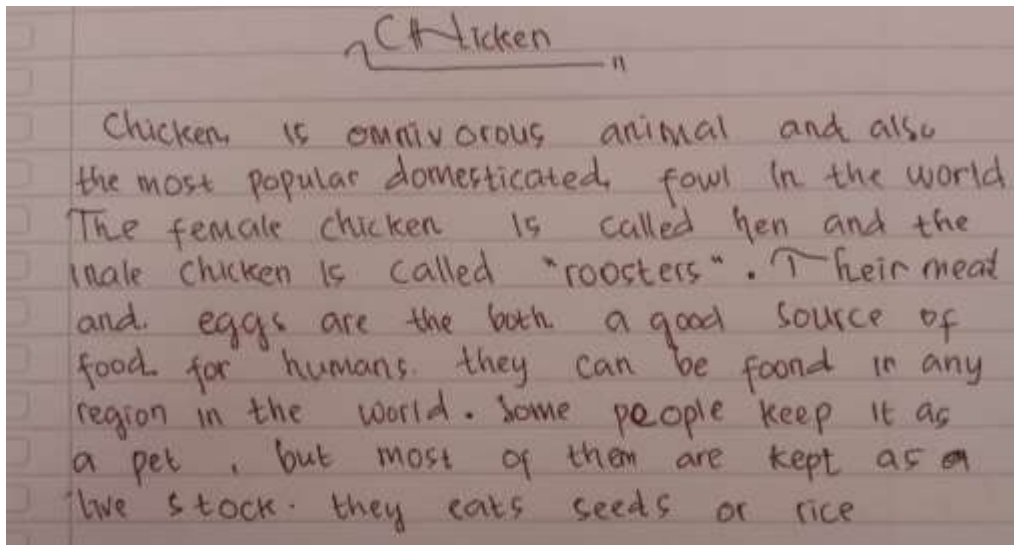 Chicken
Chicken is omnivorous animal and also
the most popular domesticated fowl in the world
The female chicken is called hen and the
male chicken is called "roosters". Their meat
and eggs are the both a good source of
food for humans. they can be foond in any
region in the world. Some people keep it as
a pet, but most of them are kept as a
live stock. they eats seeds or rice